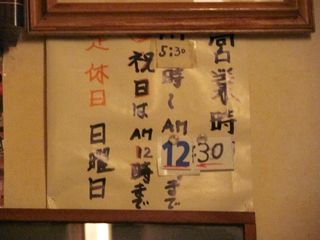 営業時
5:30
時〜AM
12:30
まで
祝日はAM12時まで
定休日 日曜日